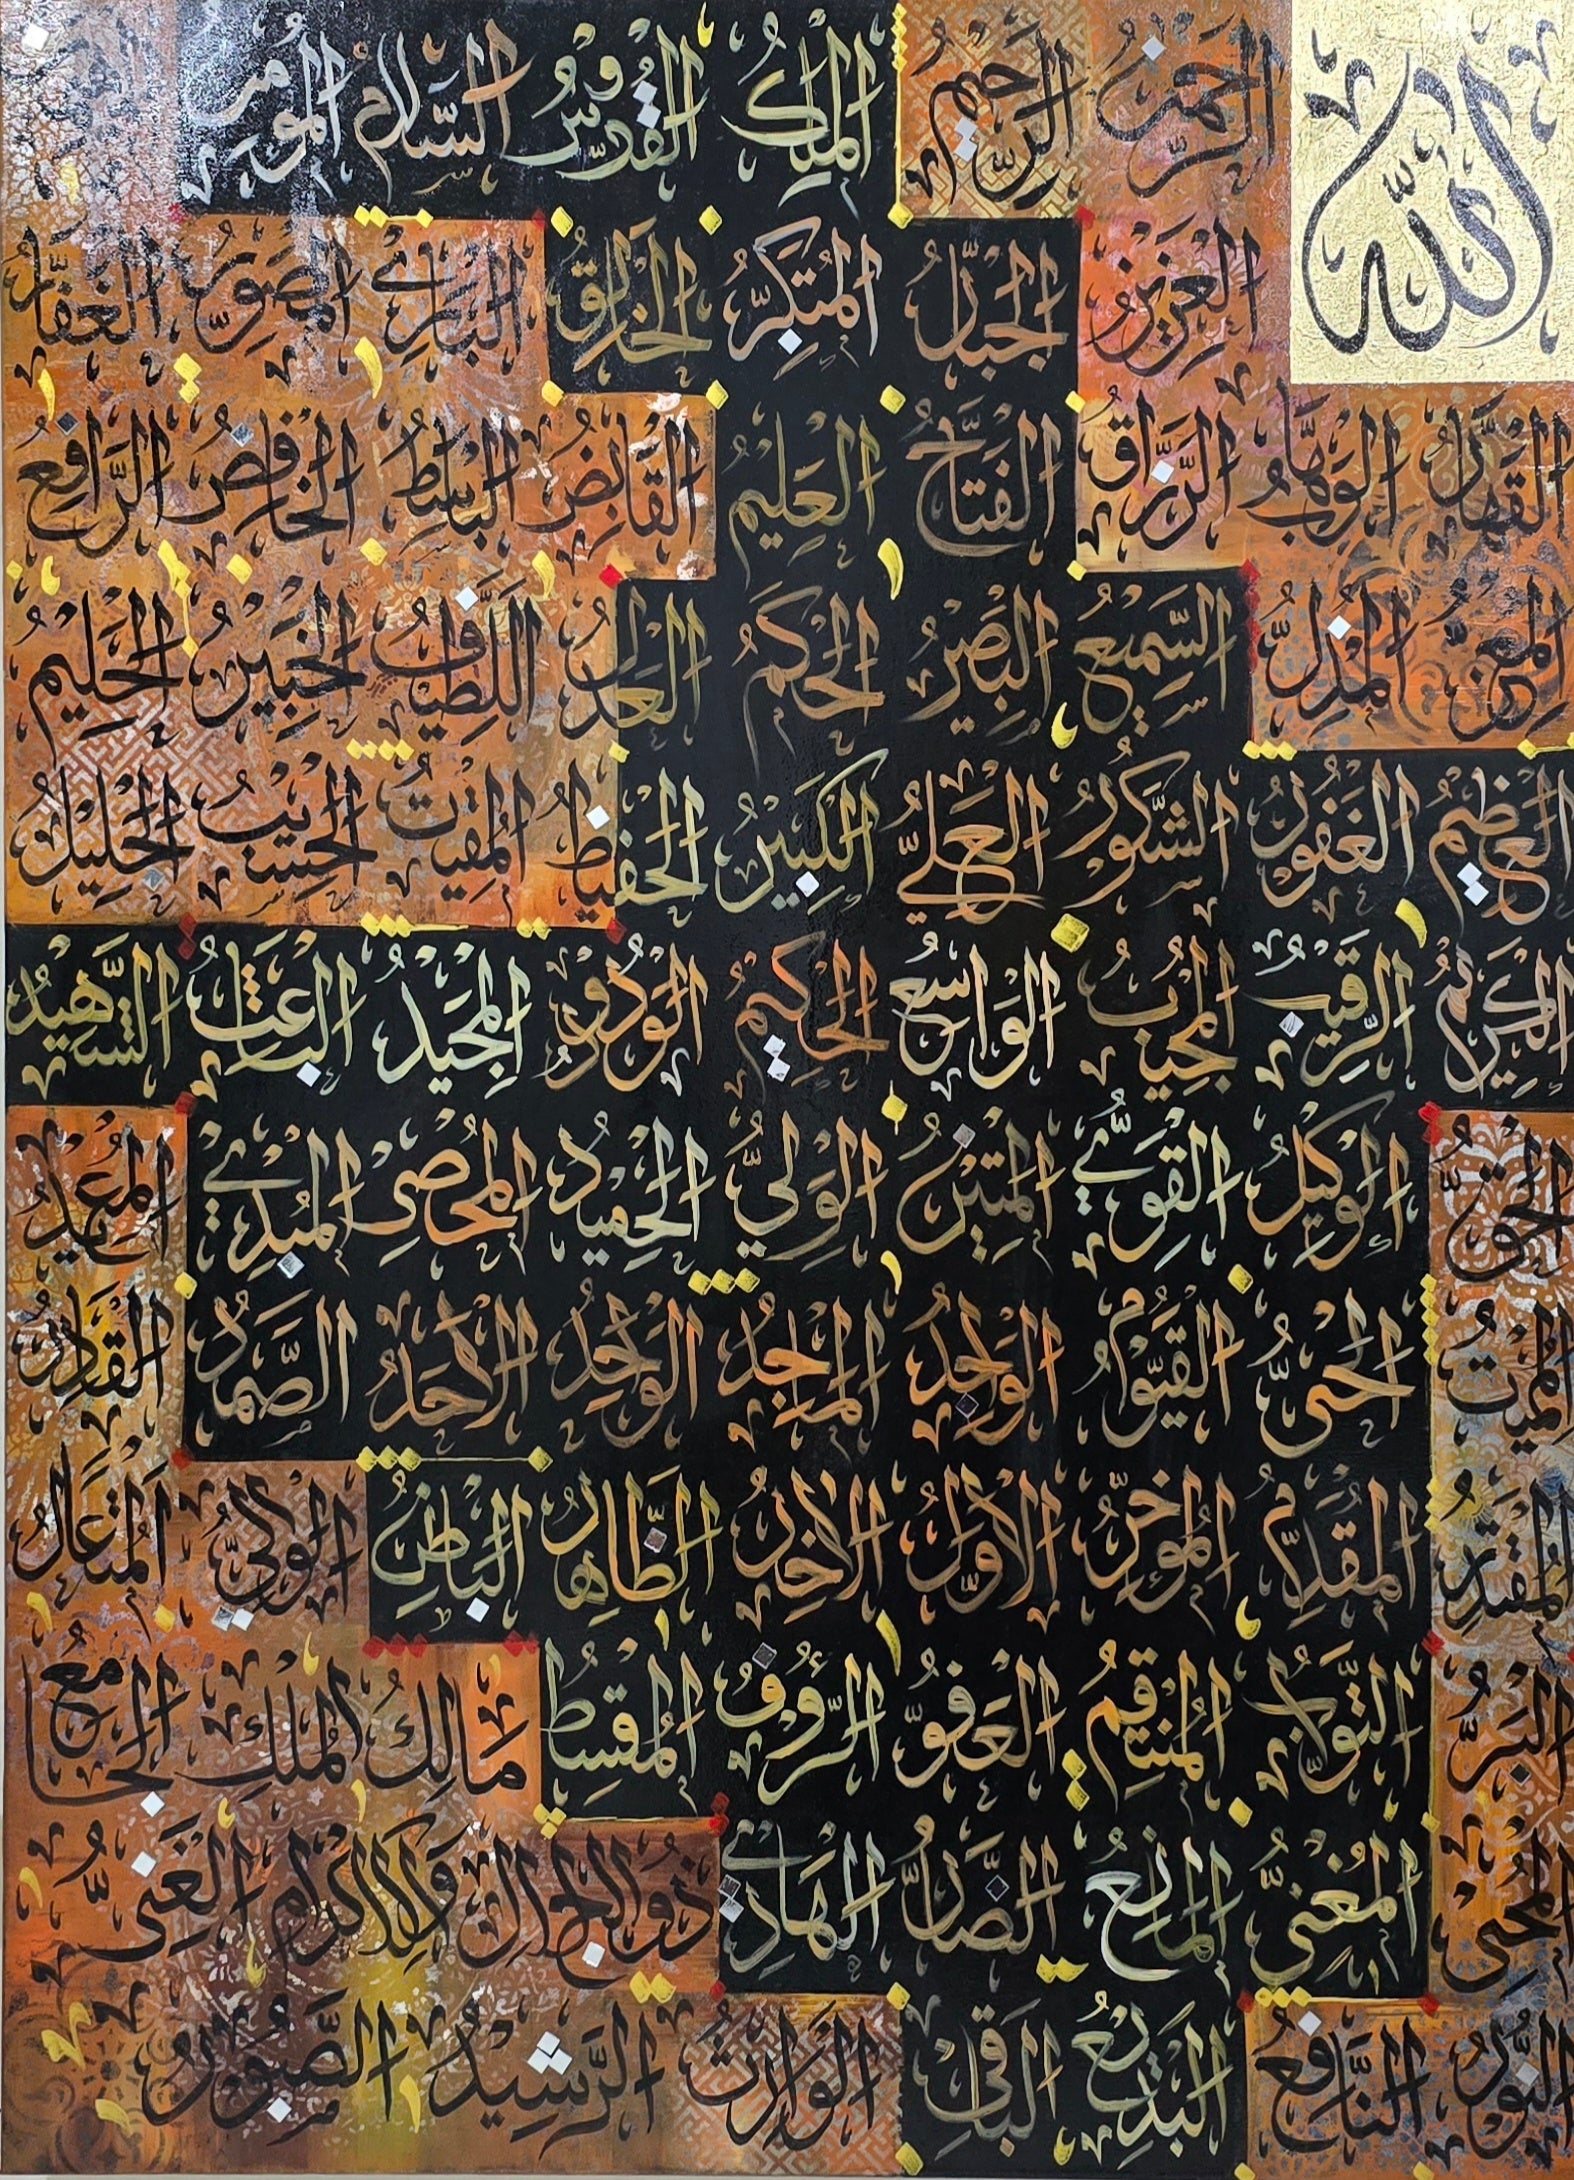 الله الرحمن الرحيم الملك القدوس السلام المؤمن
العزيز الجبار المتكبر الخالق البارئ المصور الغفار
القهار الوهاب الرزاق الفتاح العليم القابض الباسط الخافض الرافع
المعز المذل السميع البصير الحكم العدل اللطيف الخبير الحليم
العظيم الغفور الشكور العلي الكبير الحفيظ المقيت الحسيب الجليل
الكريم الرقيب المجيب الواسع الحكيم الودود المجيد الباعث الشهيد
الحق الوكيل القوي المتين الولي الحميد المحصي المبدئ المعيد
المميت الحي القيوم الواجد الماجد الواحد الاحد الصمد القادر
المقتدر المقدم المؤخر الاول الاخر الظاهر الباطن الوالي المتعال
البر التواب المنتقم العفو الرؤوف المقسط مالك الملك الجامع
المحيي المغني المانع الضار الهادي ذو الجلال والاكرام الغني
النور النافع البديع الباقي الوارث الرشيد الصبور